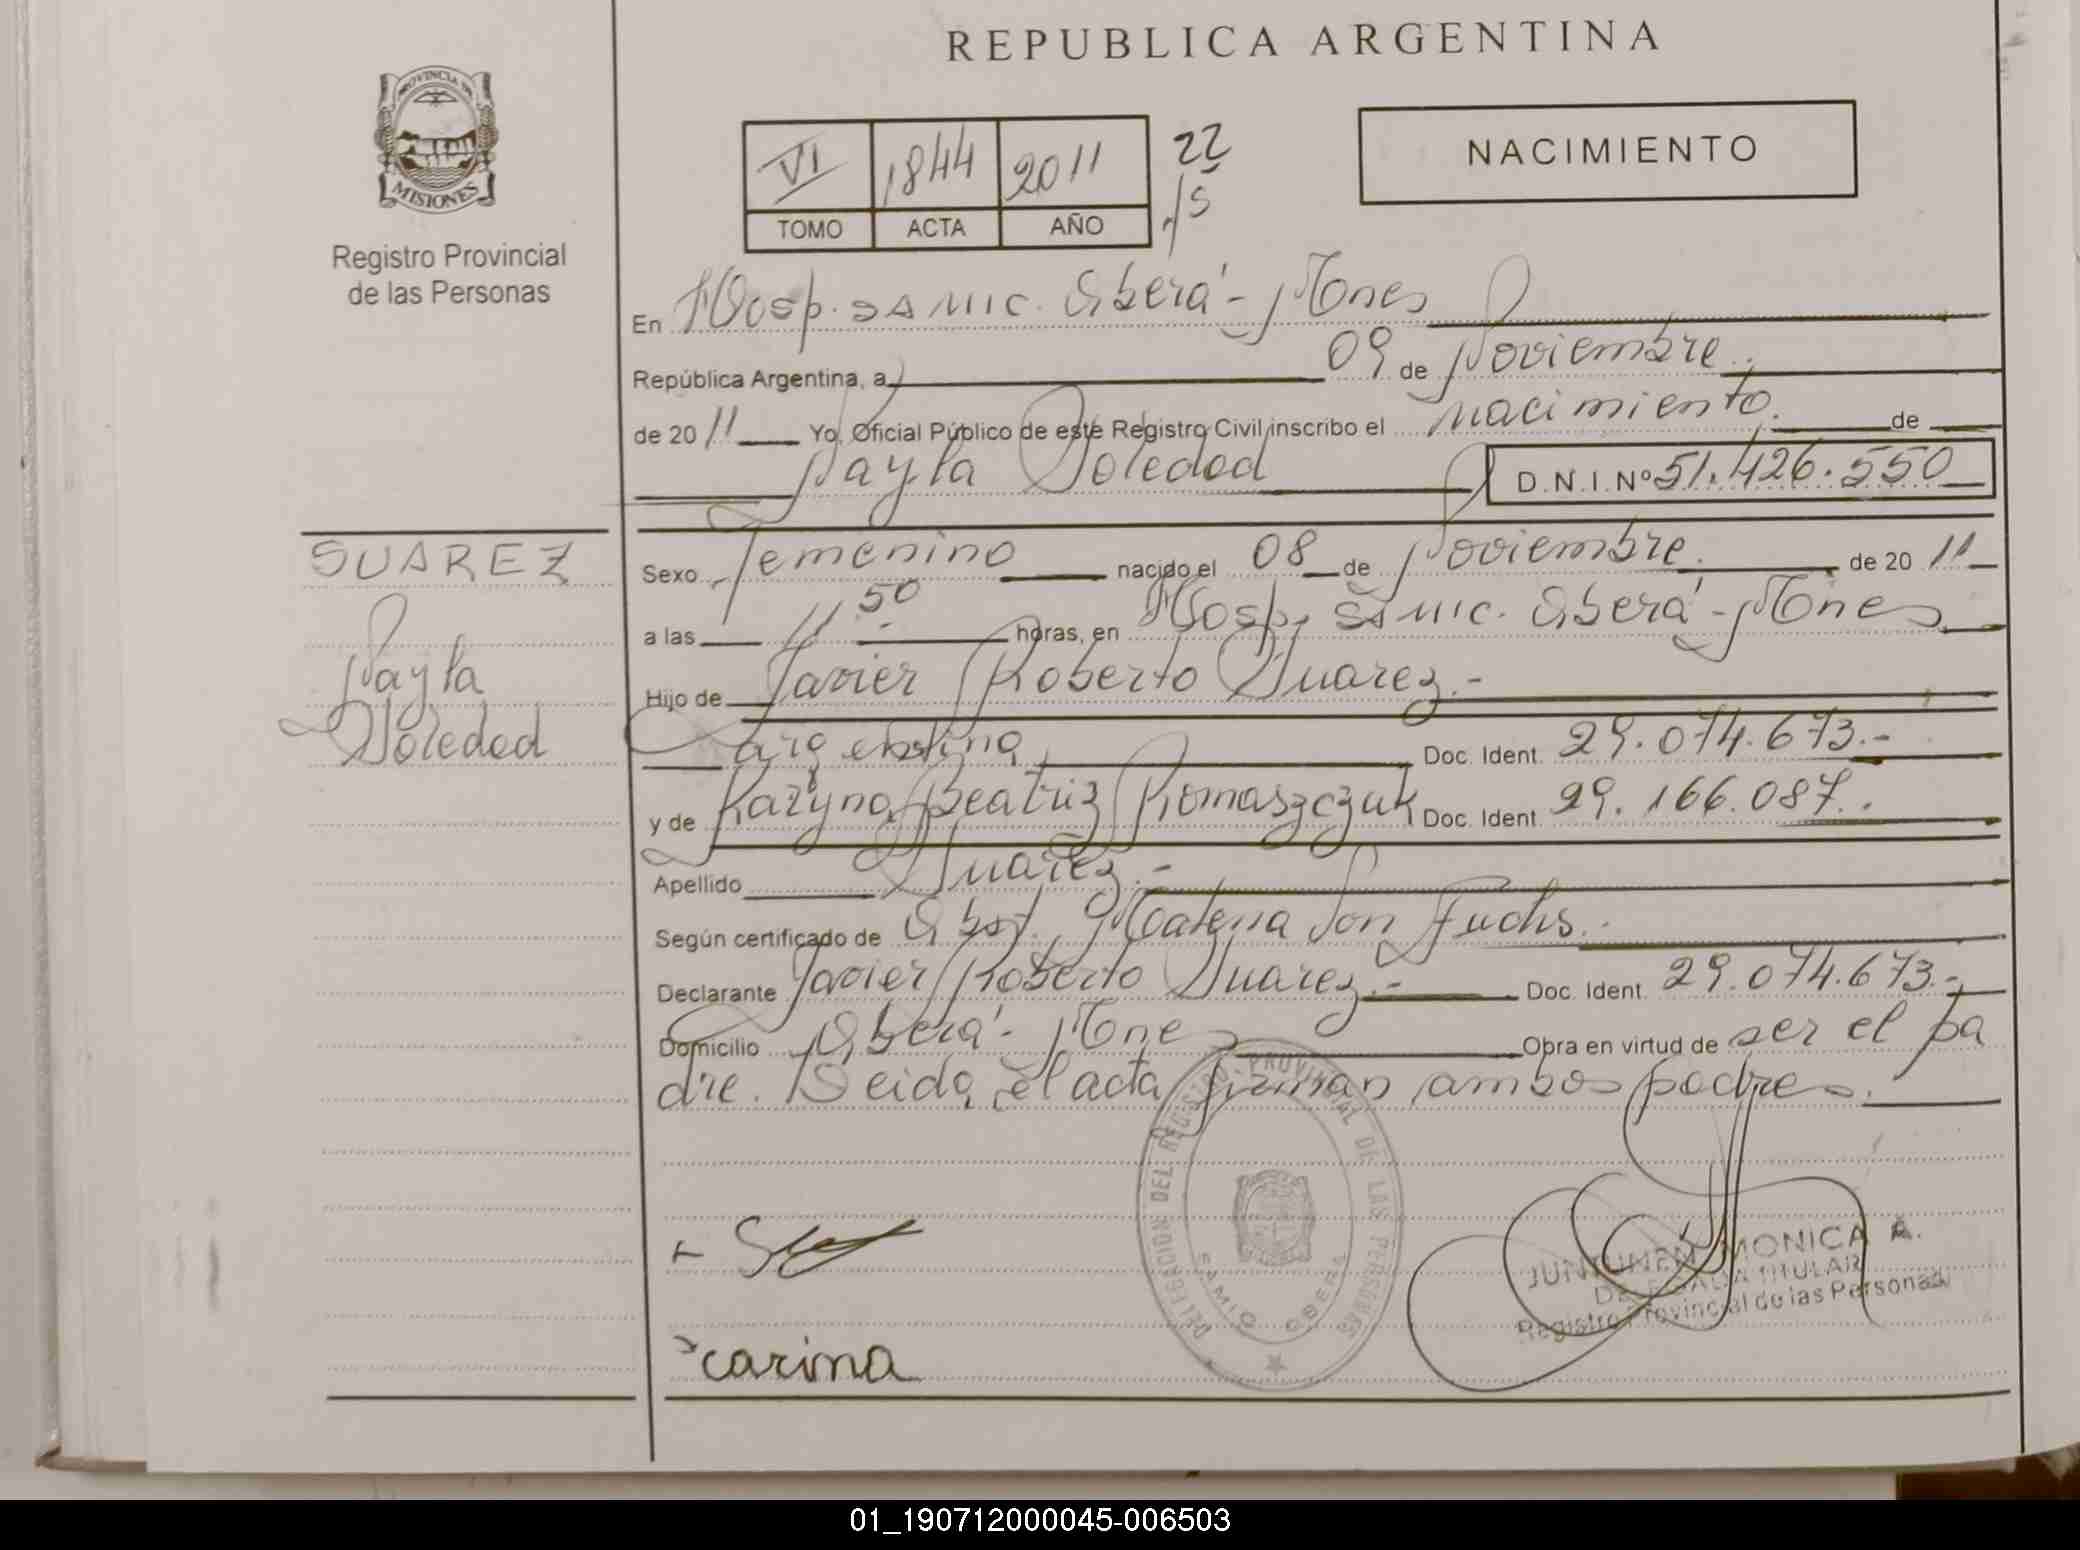 REPUBLICA ARGENTINA
PROVINCIA DE
MISIONES
Registro Provincial
de las Personas
VI 1844 2011 22
TOMO ACTA AÑO 15
NACIMIENTO
En Hosp. SAMIC. Oberá - Mones
República Argentina, a 09 de Noviembre
de 2011 Yo, Oficial Público de este Registro Civil inscribo el Nacimiento. de
Nayla Soledad D.N.I.Nº 51.426.550
SUAREZ
Nayla
Soledad
Sexo Femenino nacido el 08 de Noviembre. de 2011
a las 11 50 horas, en Hosp. SAMIC. Oberá - Mones
Hijo de Javier Roberto Suarez.-
argentina Doc. Ident. 29.074.673.-
y de Karyna Beatriz Romaszczuk Doc. Ident. 29.166.087.
Apellido Suarez.-
Según certificado de Obst. Von Fuchs.
Declarante Javier Roberto Suarez.- Doc. Ident. 29.074.673.-
Domicilio Oberá - Mones Obra en virtud de ser el pa
dre. Leida el acta firman ambos padres.
DELEGACION DEL REGISTRO PROVINCIAL DE LAS PERSONAS
SAMIC OBERA
carina
JUNTUNEN MONICA A.
DELEGADA TITULAR
Registro Provincial de las Personas
01_190712000045-006503